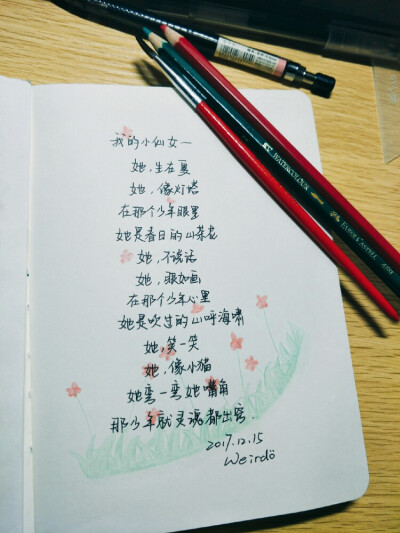 我的小仙女—
她，生在夏
她，像灯塔
在那个少年眼里
她是春日的山茶花
她，不说话
她，眼如画
在那个少年心里
她是吹过的山呼海啸
她，笑一笑
她，像小猫
她弯一弯她嘴角
那少年就灵魂都出窍.
2017.12.15
Weirdo
WATERCOLOUR